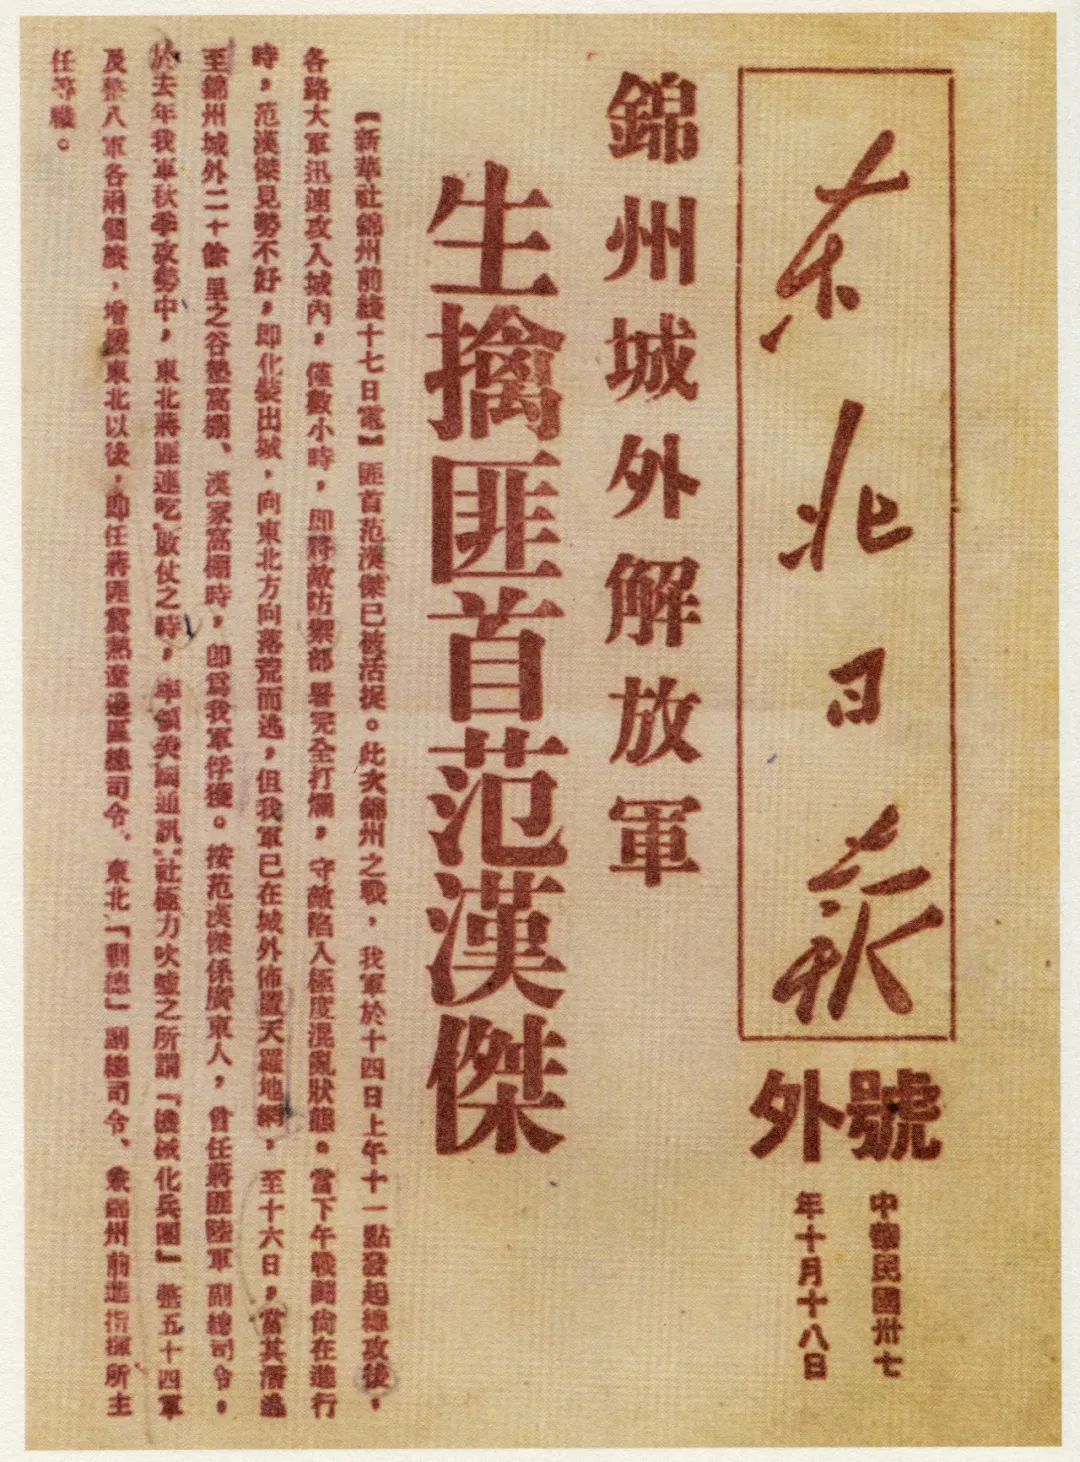 东北日报
號外
中華民國卅七
年十月十八日
錦州城外解放軍
生擒匪首范漢傑
【新華社錦州前綫十七日電】匪首范漢傑已被活捉。此次錦州之戰，我軍於十四日上午十一點發起總攻後，
各路大軍迅速攻入城內，僅數小時，即將敵防禦部署完全打爛，守敵陷入極度混亂狀態。當下午戰鬪尙在進行
時，范漢傑見勢不好，即化裝出城，向東北方向落荒而逃，但我軍已在城外佈置天羅地網，至十六日，當其潛逃
至錦州城外二十餘里之谷墊窩棚、漢家窩棚時，卽爲我軍俘獲。按范漢傑係廣東人，曾任蔣匪陸軍副總司令。
於去年我軍秋季攻勢中，東北蔣匪連吃敗仗之時，率領美國通訊社極力吹噓之所謂『機械化兵團』整五十四軍
及整八軍各兩個旅，增援東北以後，即任蔣匪冀熱遼邊區總司令、東北『剿總』副總司令、兼錦州前進指揮所主
任等職。